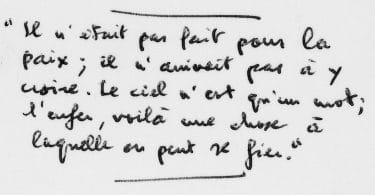 "Il n'était pas fait pour la
paix ; il n'arrivait pas à y
croire. Le ciel n'est qu'un mot ;
l'enfer, voilà une chose à
laquelle on peut se fier."